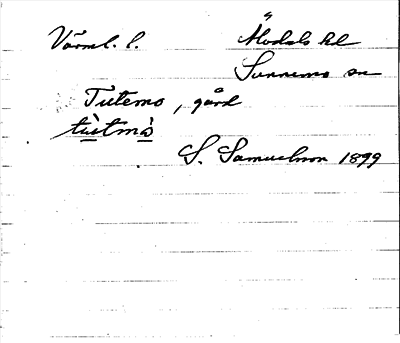 Värml. l. Älvdals hd
Sunnemo sn
Tutemo, gård
tùtmò
S. Samuelsson 1899